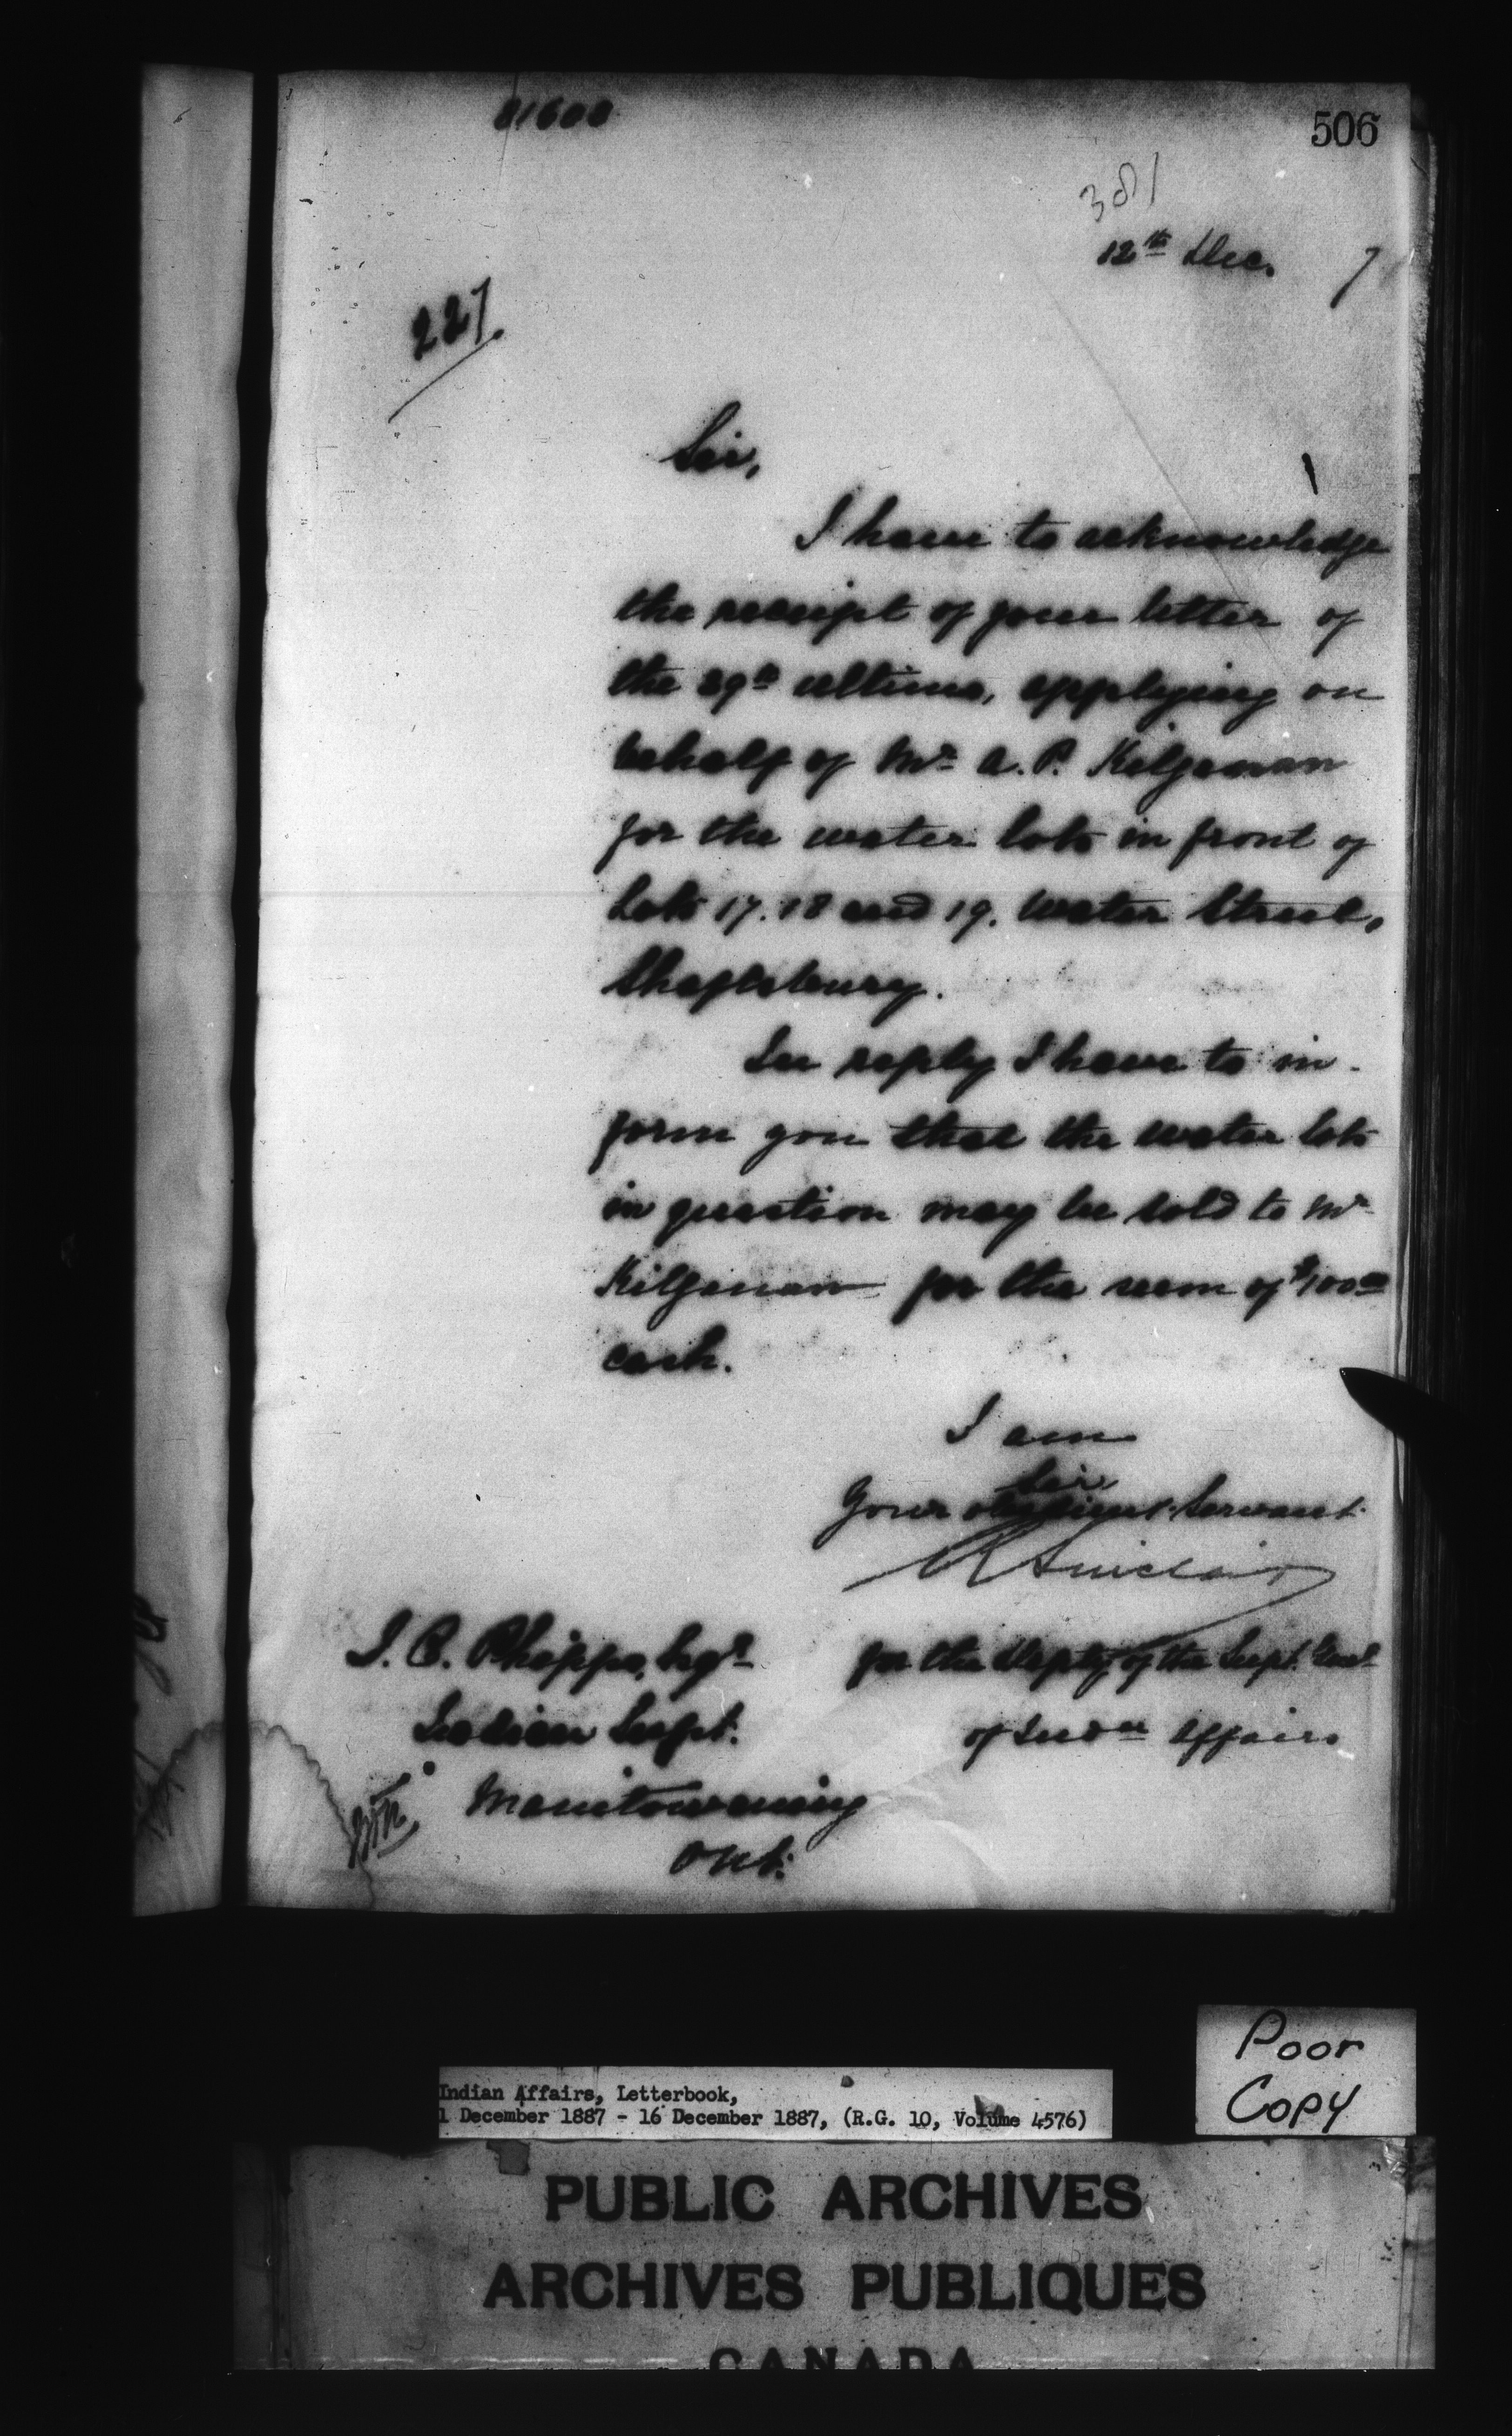 81600
506
381
12th Dec. 7
227.
Sir,
I have to acknowledge
the receipt of your letter of
the 29th ultimo, applying on
behalf of Mr A. P. Kilganan
for the water lots in front of
Lots 17. 18 and 19. Water Street,
Shaftsbury.
In reply I have to in-
form you that the water lots
in question may be sold to Mr
Kilganan for the sum of $100.00
cash.
I am
Sir,
Your obedient Servant.
R Sinclair
for the Depty of the Supt. Genl
of Indn Affairs
J. C. Phipps, Esqr
Indian Supt.
Manitowaning
Ont.
Poor
Copy
Indian Affairs, Letterbook,
1 December 1887 - 16 December 1887, (R.G. 10, Volume 4576)
PUBLIC ARCHIVES
ARCHIVES PUBLIQUES
CANADA